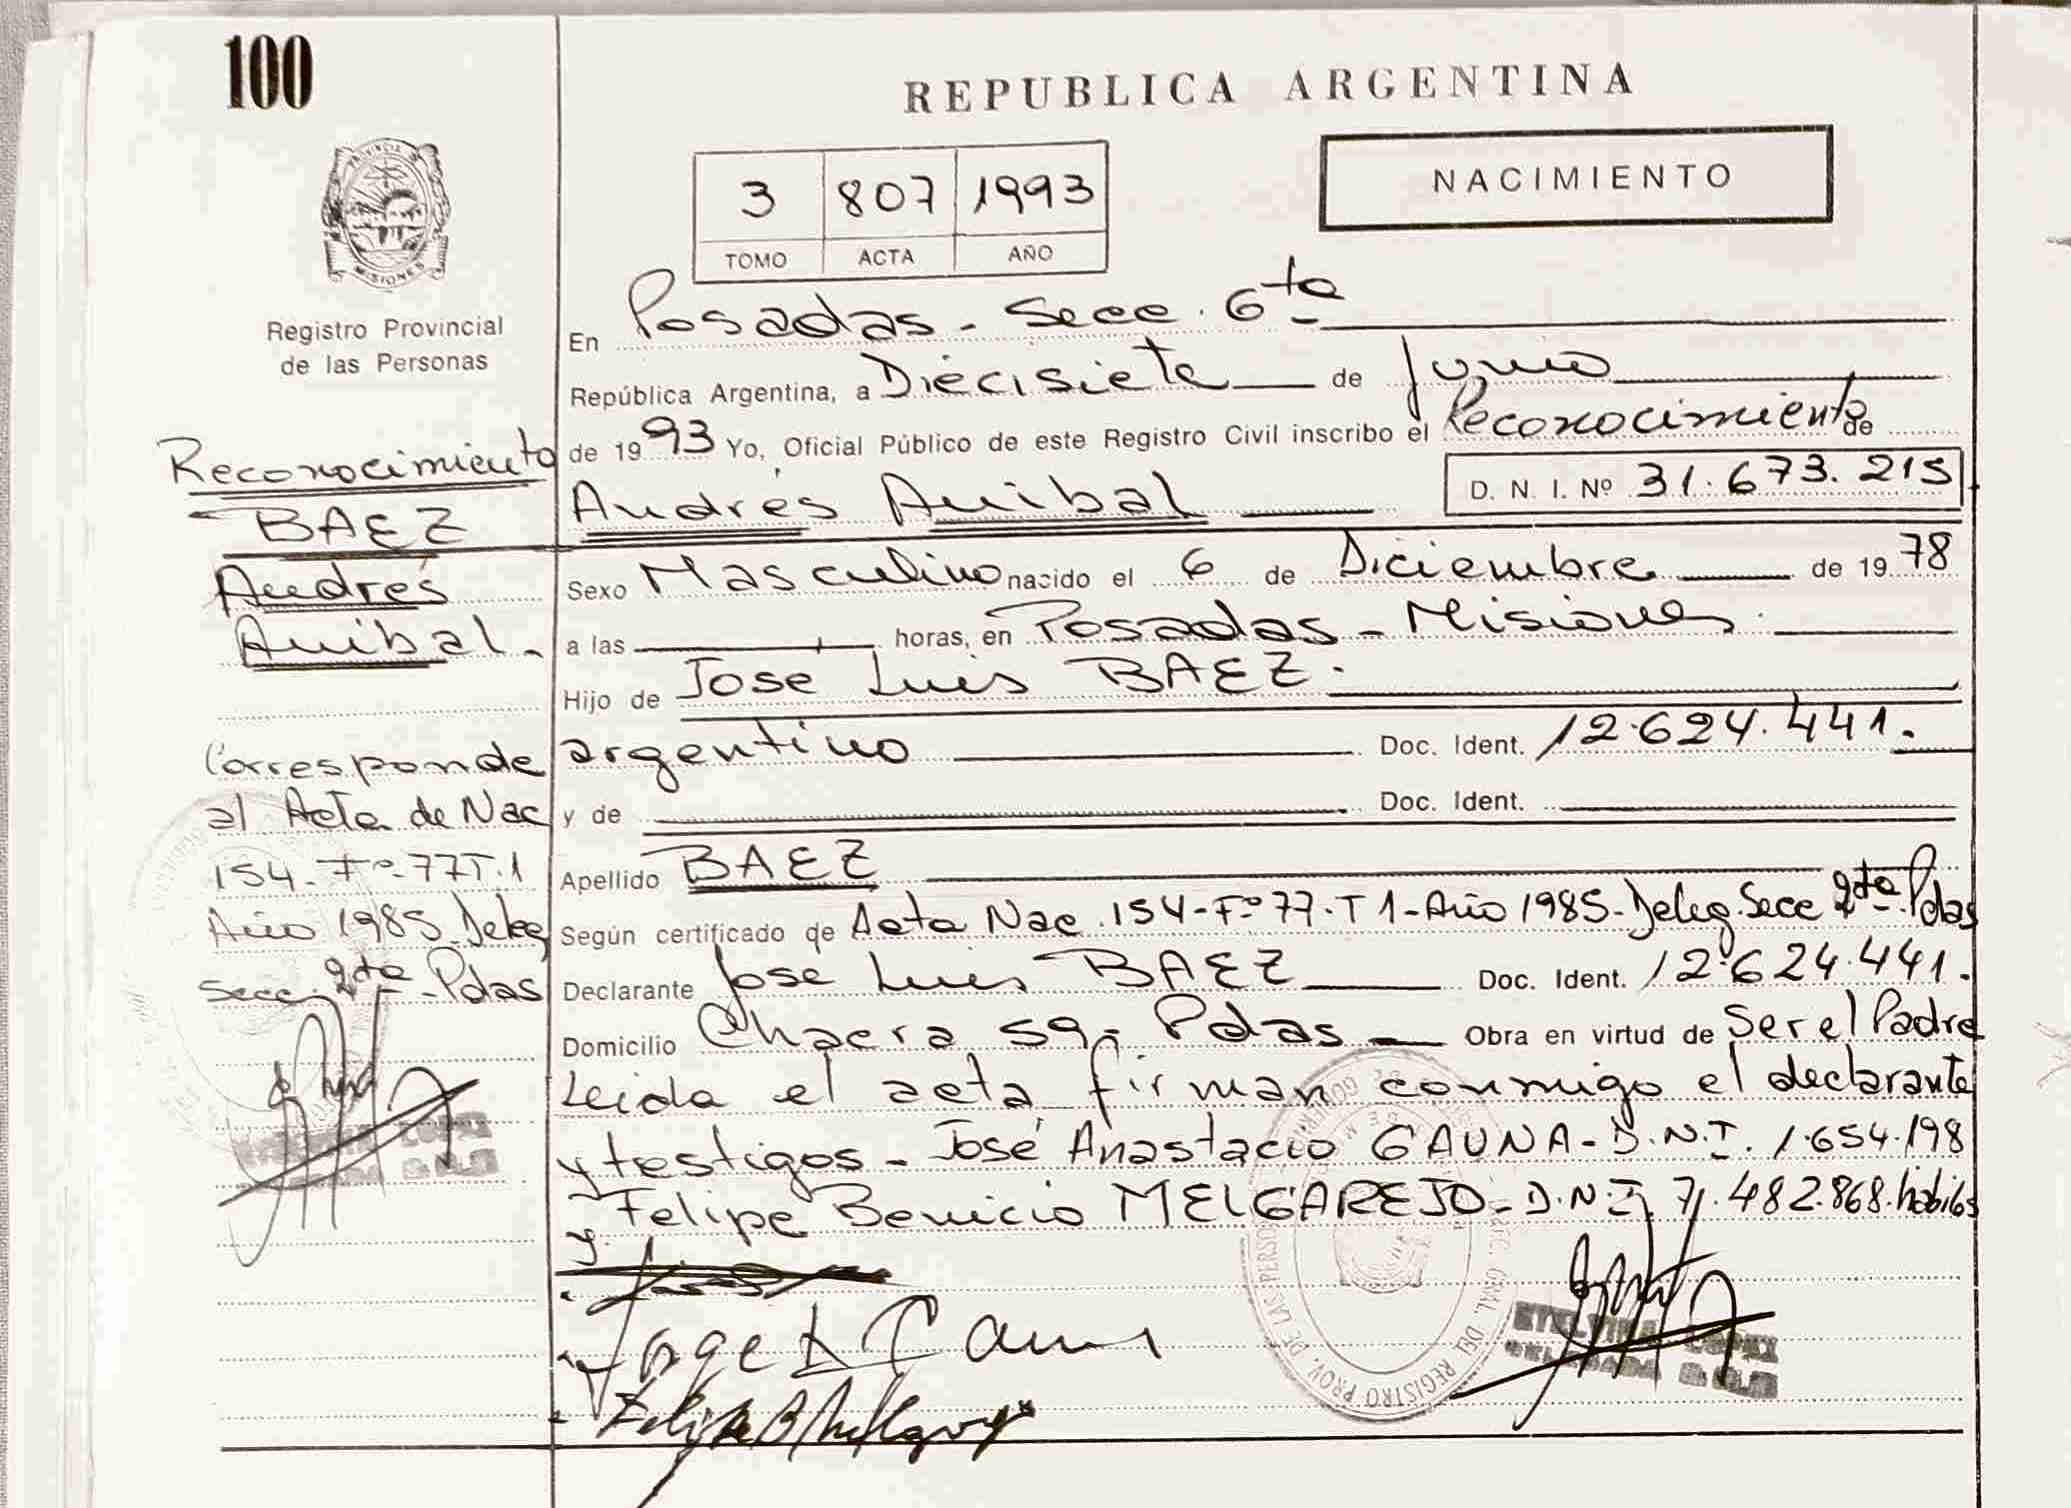 100
REPUBLICA ARGENTINA
NACIMIENTO
3 807 1993
TOMO ACTA AÑO
PROVINCIA DE
MISIONES
Registro Provincial
de las Personas
Reconocimiento
BAEZ
Andrés
Anibal.
Corresponde
al Acta de Nac
154-Fº-77T.1
Año 1985 Deleg
Secc. 2da - Pdas
En Posadas - Secc. 6ta
República Argentina, a Diecisiete de Junio
de 1993 Yo, Oficial Público de este Registro Civil inscribo el Reconocimiento de
Andrés Anibal D. N. I. Nº 31.673.215
Sexo Masculino nacido el 6 de Diciembre de 1978
a las horas, en Posadas - Misiones
Hijo de José Luis BAEZ.
argentino Doc. Ident. 12.624.441.
y de Doc. Ident.
Apellido BAEZ
Según certificado de Acta Nac. 154-Fº77-T1-Año 1985-Deleg.Secc 2da.Pdas
Declarante José Luis BAEZ Doc. Ident. 12.624.441.
Domicilio Chacra 59- Pdas Obra en virtud de Ser el Padre
Leida el acta firman conmigo el declarante
y testigos - José Anastacio GAUNA-D.N.I. 1.654.198
y Felipe Benicio MELGAREJO-D.N.I. 7.482.868.habiles
ETELVINA LOPEZ
DELEGADA
REGISTRO PROV. DE LAS PERSONAS